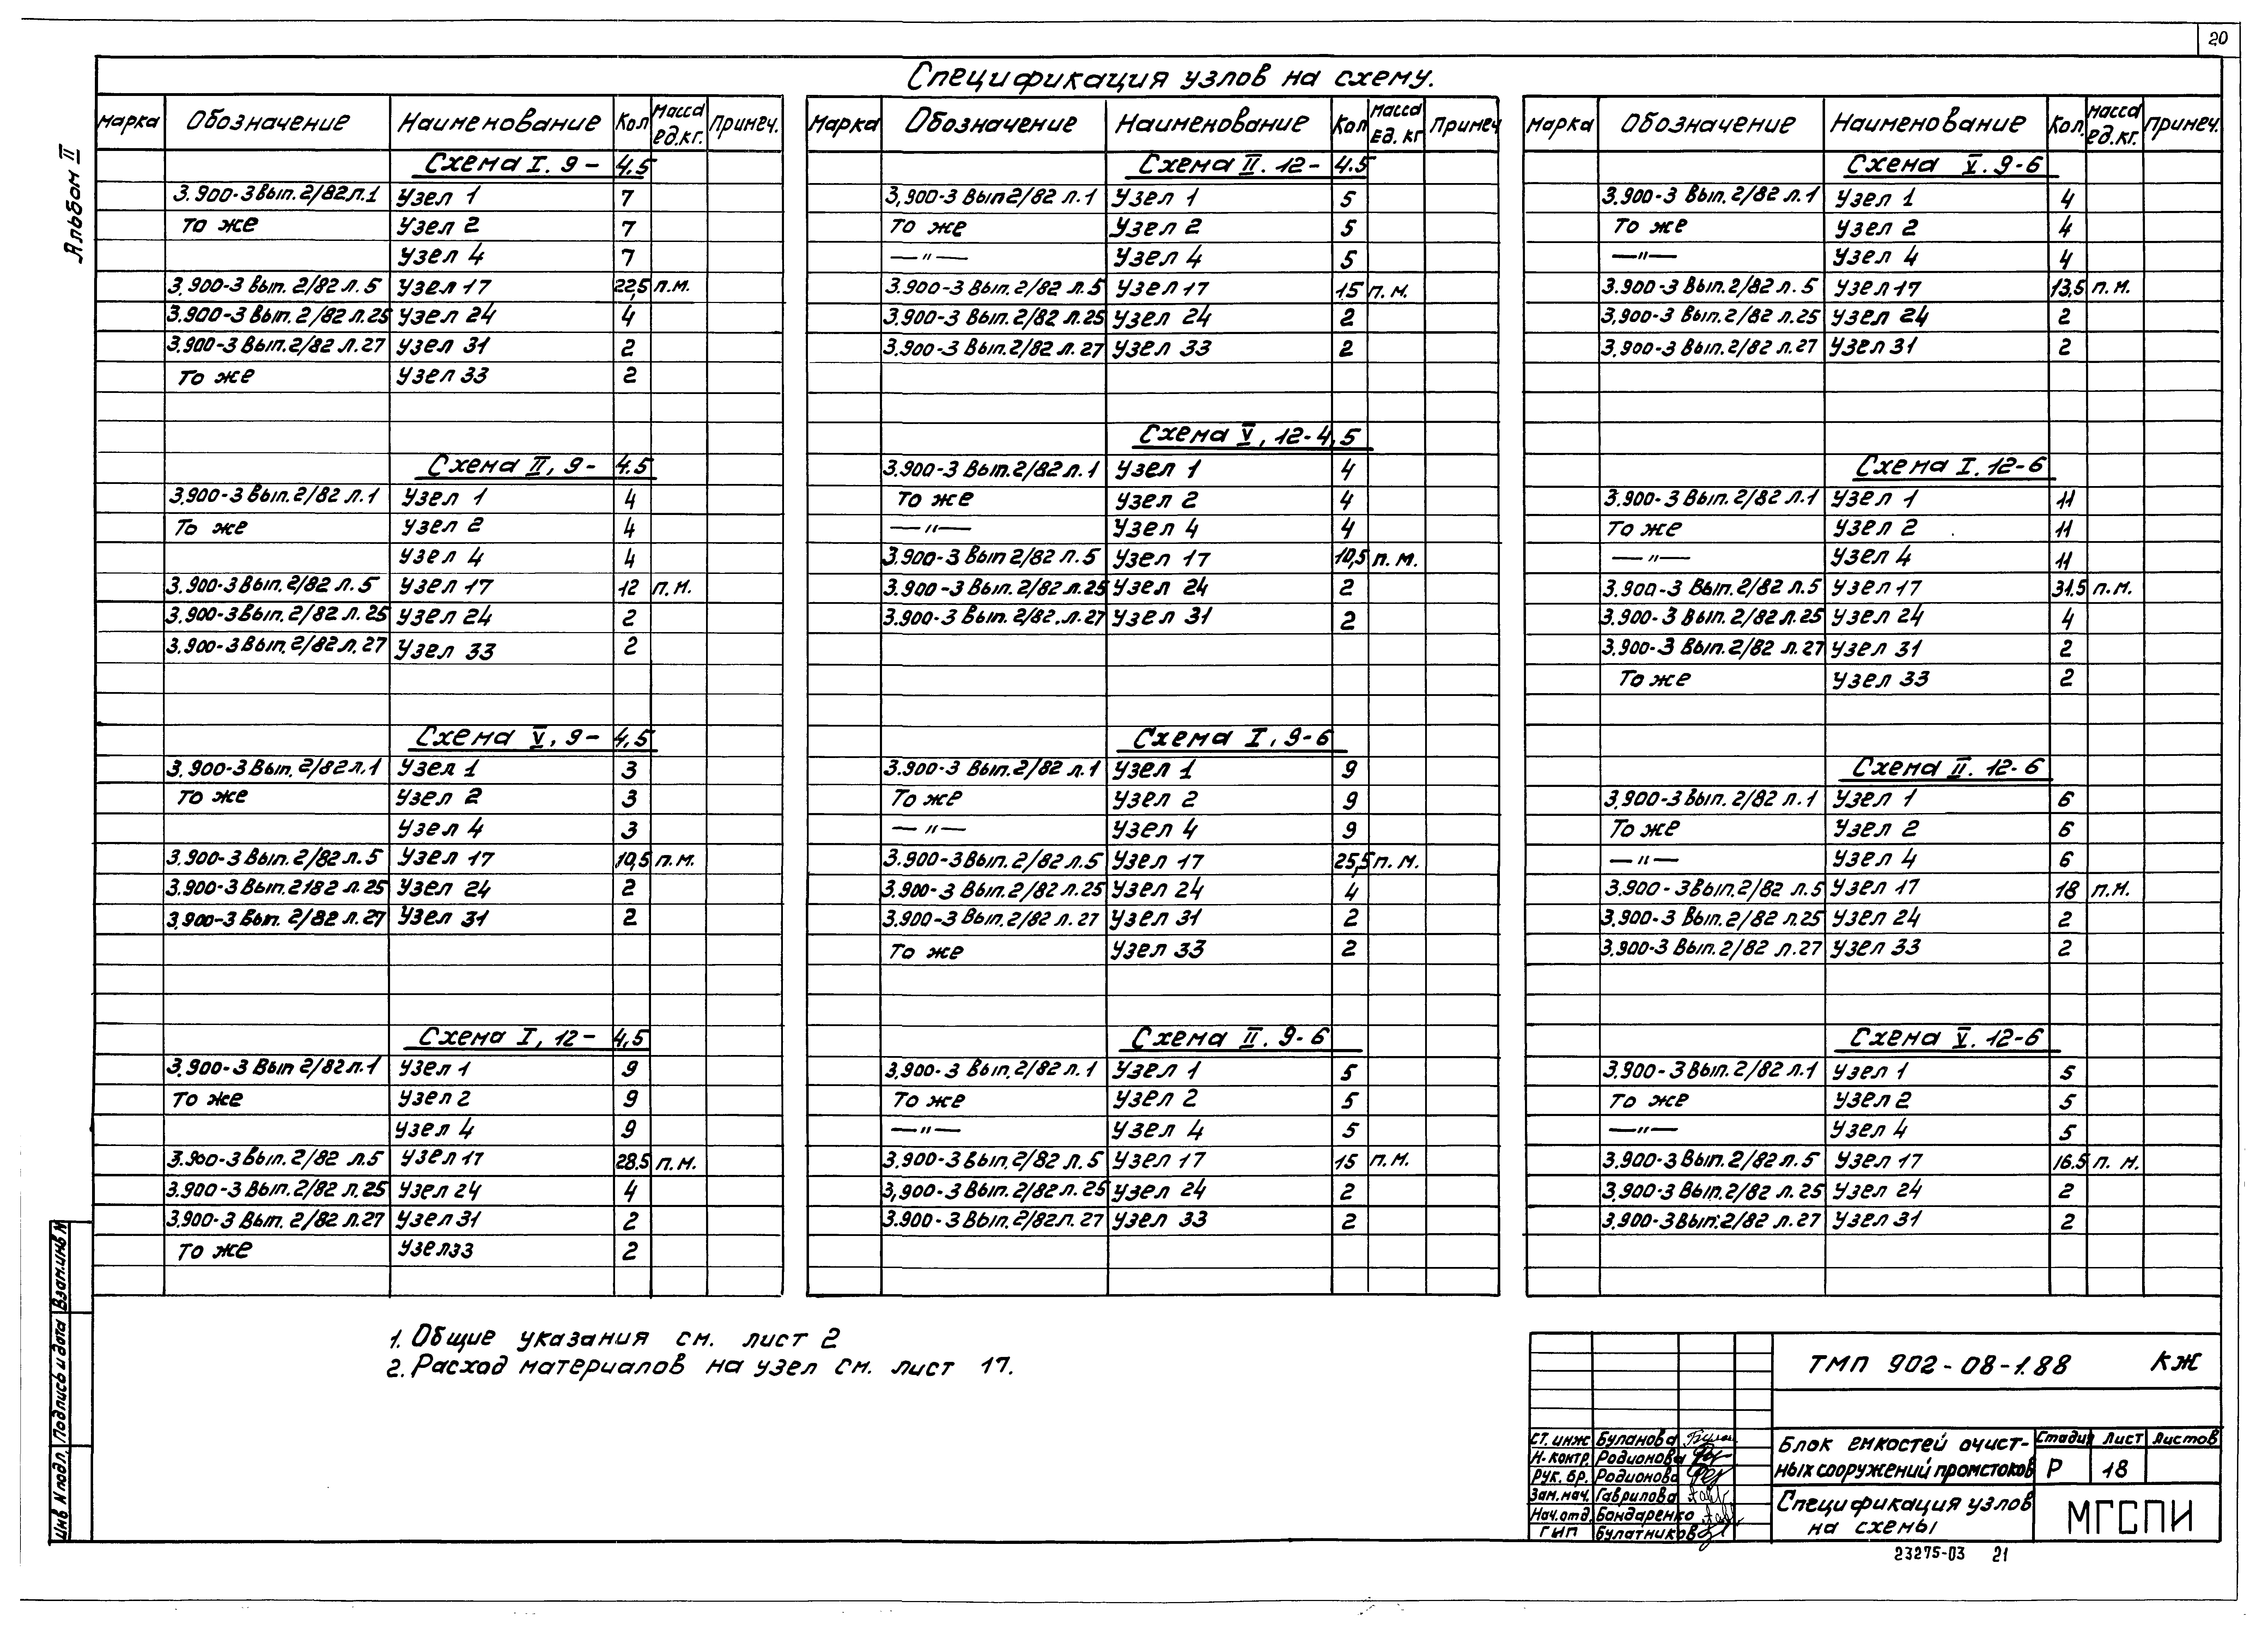 20
Альбом II
Спецификация узлов на схему.
Марка Обозначение Наименование Кол Масса ед.кг. Примеч.
Схема I. 9 - 4,5
3.900-3 Вып. 2/82 л.1 Узел 1 7
То же Узел 2 7
Узел 4 7
3.900-3 Вып. 2/82 л. 5 Узел 17 22,5 п.м.
3.900-3 Вып. 2/82 л.25 Узел 24 4
3.900-3 Вып. 2/82 л.27 Узел 31 2
То же Узел 33 2
Схема II, 9 - 4.5
3.900-3 Вып. 2/82 л.1 Узел 1 4
То же Узел 2 4
Узел 4 4
3.900-3 Вып. 2/82 л. 5 Узел 17 12 п.м.
3.900-3 Вып. 2/82 л. 25 Узел 24 2
3.900-3 Вып. 2/82 л. 27 Узел 33 2
Схема V, 9 - 4,5
3.900-3 Вып. 2/82 л.1 Узел 1 3
То же Узел 2 3
Узел 4 3
3.900-3 Вып. 2/82 л. 5 Узел 17 10,5 п.м.
3.900-3 Вып. 2182 л. 25 Узел 24 2
3.900-3 Вып. 2/82 л. 27 Узел 31 2
Схема I, 12 - 4,5
3.900-3 Вып 2/82 л.1 Узел 1 9
То же Узел 2 9
Узел 4 9
3.900-3 Вып. 2/82 л.5 Узел 17 28,5 п.м.
3.900-3 Вып. 2/82 л. 25 Узел 24 4
3.900-3 Вып. 2/82 л.27 Узел 31 2
То же Узел33 2
Марка Обозначение Наименование Кол Масса ед. кг Примеч
Схема II. 12 - 4.5
3,900-3 Вып 2/82 л.1 Узел 1 5
То же Узел 2 5
—"— Узел 4 5
3.900-3 Вып. 2/82 л.5 Узел 17 15 п.м.
3.900-3 Вып. 2/82 л.25 Узел 24 2
3.900-3 Вып. 2/82 л. 27 Узел 33 2
Схема V, 12-4,5
3.900-3 Вып. 2/82 л.1 Узел 1 4
То же Узел 2 4
—"— Узел 4 4
3.900-3 Вып 2/82 л. 5 Узел 17 10,5 п. м.
3.900-3 Вып. 2/82 л.25 Узел 24 2
3.900-3 Вып. 2/82. л.27 Узел 31 2
Схема I, 9-6
3.900-3 Вып. 2/82 л.1 Узел 1 9
То же Узел 2 9
—"— Узел 4 9
3.900-3 Вып. 2/82 л.5 Узел 17 25,5 п. м.
3.900-3 Вып. 2/82 л.25 Узел 24 4
3.900-3 Вып. 2/82 л. 27 Узел 31 2
То же Узел 33 2
Схема II. 9-6
3,900-3 Вып. 2/82 л.1 Узел 1 5
То же Узел 2 5
—"— Узел 4 5
3,900-3 Вып. 2/82 л. 5 Узел 17 15 п.м.
3,900-3 Вып. 2/82 л. 25 Узел 24 2
3.900-3 Вып. 2/82л. 27 Узел 33 2
Марка Обозначение Наименование Кол. Масса ед.кг. Примеч.
Схема V. 9-6
3.900-3 Вып. 2/82 л.1 Узел 1 4
То же Узел 2 4
—"— Узел 4 4
3.900-3 Вып. 2/82 л. 5 Узел 17 13,5 п.м.
3,900-3 Вып. 2/82 л.25 Узел 24 2
3,900-3 Вып. 2/82 л. 27 Узел 31 2
Схема I. 12-6
3.900-3 Вып. 2/82 л.1 Узел 1 11
То же Узел 2 11
—"— Узел 4 11
3.900-3 Вып. 2/82 л.5 Узел 17 31.5 п.м.
3.900-3 Вып. 2/82 л.25 Узел 24 4
3.900-3 Вып. 2/82 л.27 Узел 31 2
То же Узел 33 2
Схема II. 12-6
3.900-3 Вып. 2/82 л.1 Узел 1 6
То же Узел 2 6
—"— Узел 4 6
3.900-3 Вып. 2/82 л.5 Узел 17 18 п.м.
3.900-3 Вып. 2/82 л.25 Узел 24 2
3.900-3 Вып. 2/82 л.27 Узел 33 2
Схема V. 12-6
3.900-3 Вып. 2/82 л.1 Узел 1 5
То же Узел 2 5
—"— Узел 4 5
3.900-3 Вып. 2/82 л.5 Узел 17 16.5 п. м.
3.900-3 Вып. 2/82 л. 25 Узел 24 2
3.900-3 Вып. 2/82 л. 27 Узел 31 2
1. Общие указания см. лист 2
2. Расход материалов на узел см. лист 17.
Инв N подл. Подпись и дата Взам.инв N
ТМП 902-08-1.88 КЖ
Ст. инж Буланова
Н. контр. Родионова
Рук. бр. Родионова
Зам. нач. Гаврилова
Нач.отд. Бондаренко
ГИП Булатников
Блок емкостей очист-
ных сооружений промстоков
Стадия Лист Листов
Р 18
Спецификация узлов
на схемы
МГСПИ
23275-03 21